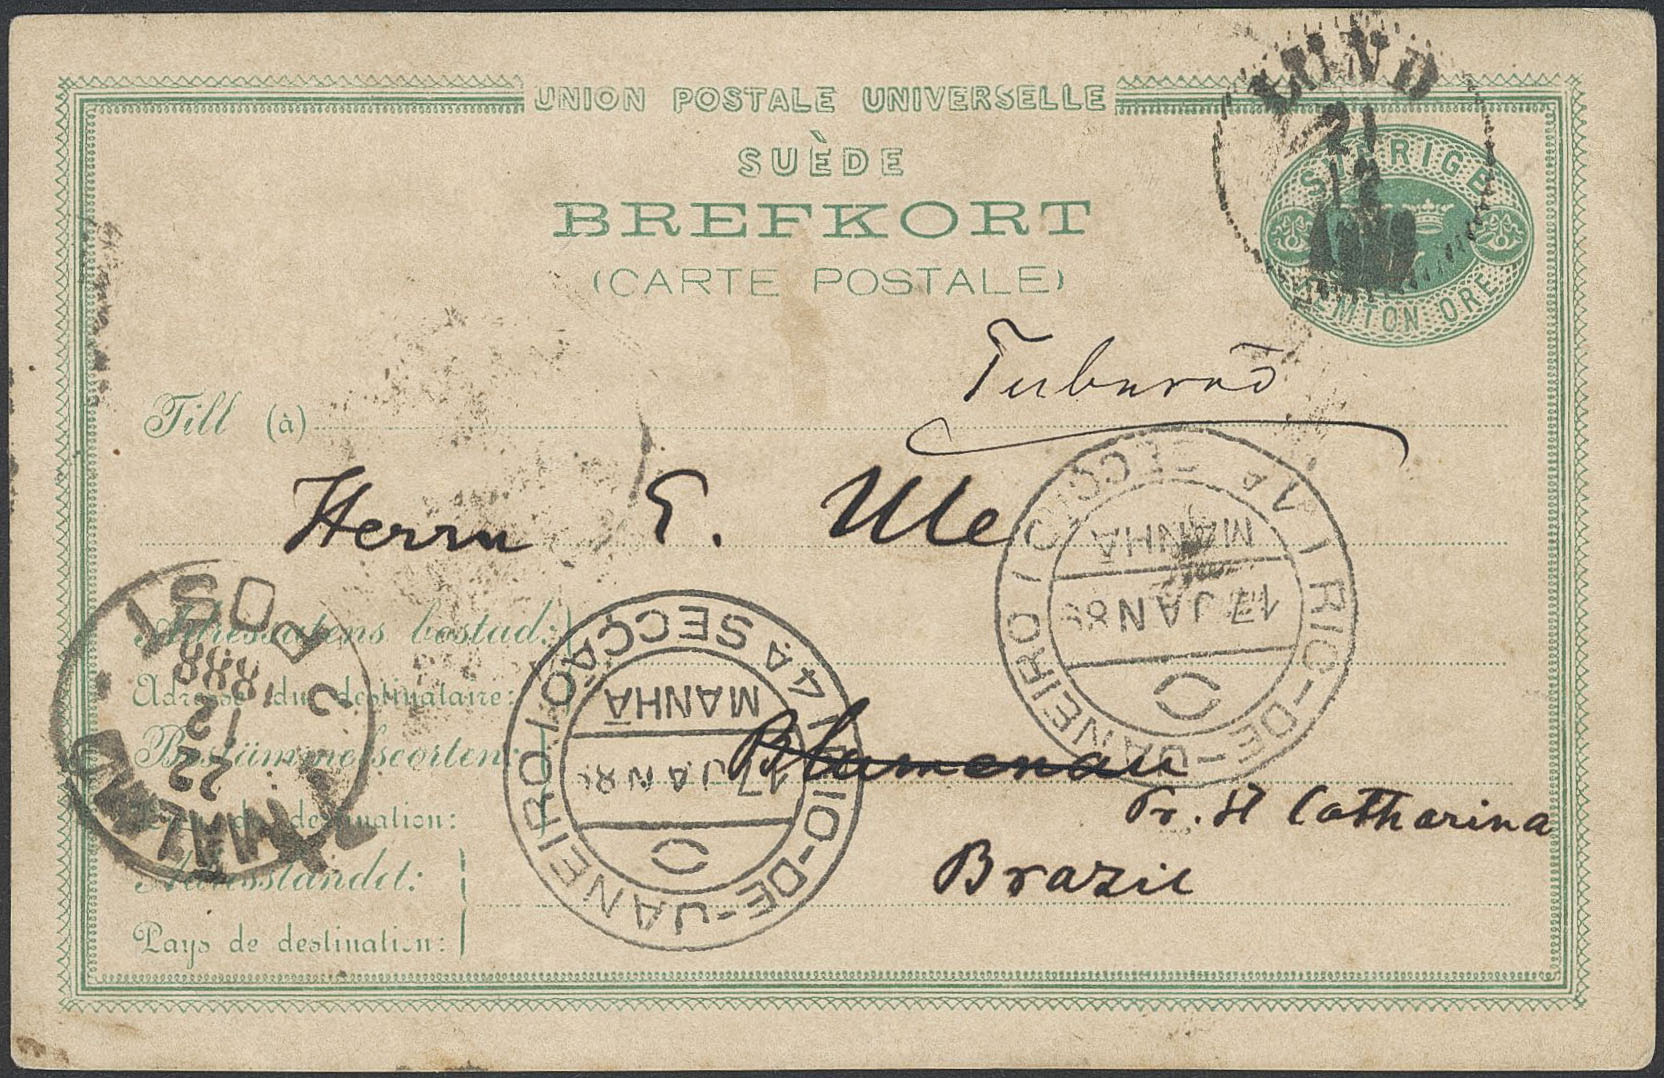 UNION POSTALE UNIVERSELLE
SUÈDE
BREFKORT
(CARTE POSTALE)
LUND
21
12
SVERIGE
ORE
Till (à)
Herrn E. Ule
Adressatens bostad:
Adresse du destinataire:
Bestämmelseorten:
Blumenau
Pr. St Catharina
Adresslandet:
Brazil
Pays de destination:
MALMÖ
22
12
1888
2. POST.
RIO-DE-JANEIRO / 4A SECÇÃO /
MANHÃ
17 JAN 8
RIO-DE-JANEIRO / 4A SECÇÃO /
MANHÃ
17 JAN 89